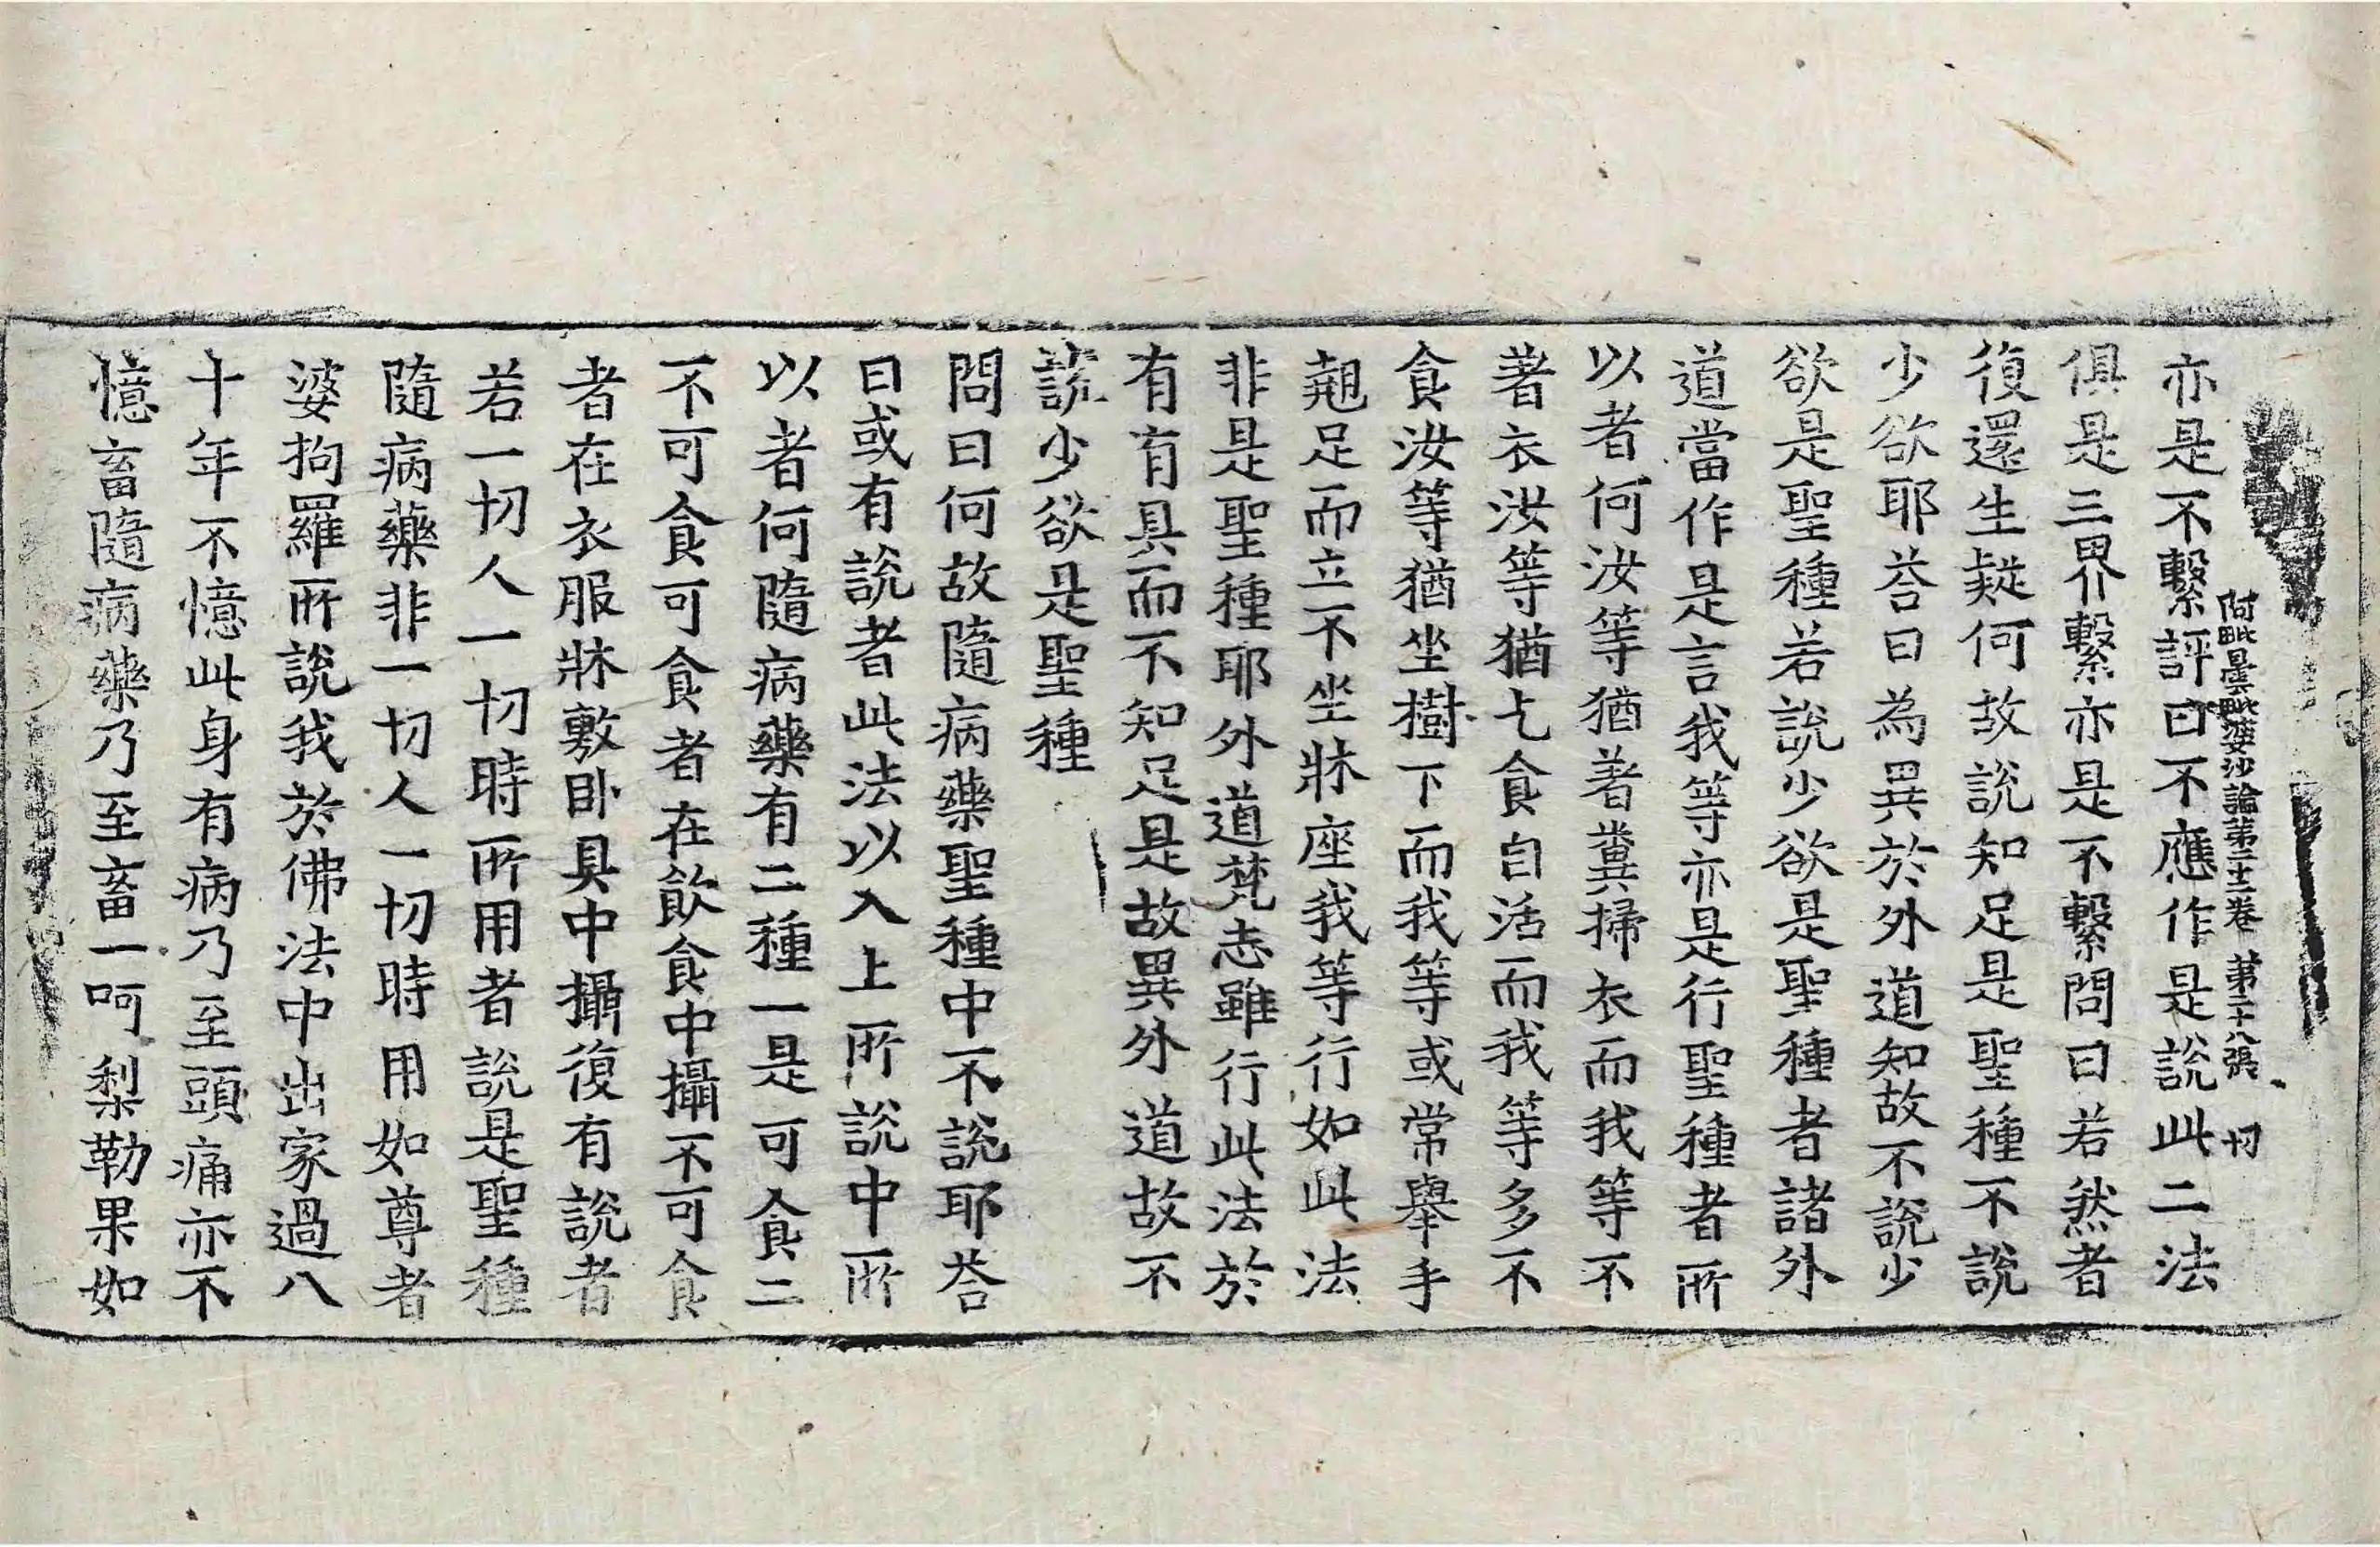 阿毗曇毗婆沙論第二十二卷 第二十八張 切
亦是不繫評曰不應作是說此二法
俱是三界繫亦是不繫問曰若然者
復還生疑何故說知足是聖種不說
少欲耶荅曰為異於外道知故不說少
欲是聖種若說少欲是聖種者諸外
道當作是言我等亦是行聖種者所
以者何汝等猶著糞掃衣而我等不
著衣汝等猶乞食自活而我等多不
食汝等猶坐樹下而我等或常舉手
翹足而立不坐牀座我等行如此法
非是聖種耶外道梵志雖行此法於
有有具而不知足是故異外道故不
說少欲是聖種
問曰何故隨病藥聖種中不說耶荅
曰或有說者此法以入上所說中所
以者何隨病藥有二種一是可食二
不可食可食者在飲食中攝不可食
者在衣服牀敷卧具中攝復有說者
若一切人一切時所用者說是聖種
隨病藥非一切人一切時用如尊者
婆拘羅所說我於佛法中出家過八
十年不憶此身有病乃至頭痛亦不
憶畜隨病藥乃至畜一呵梨勒果如